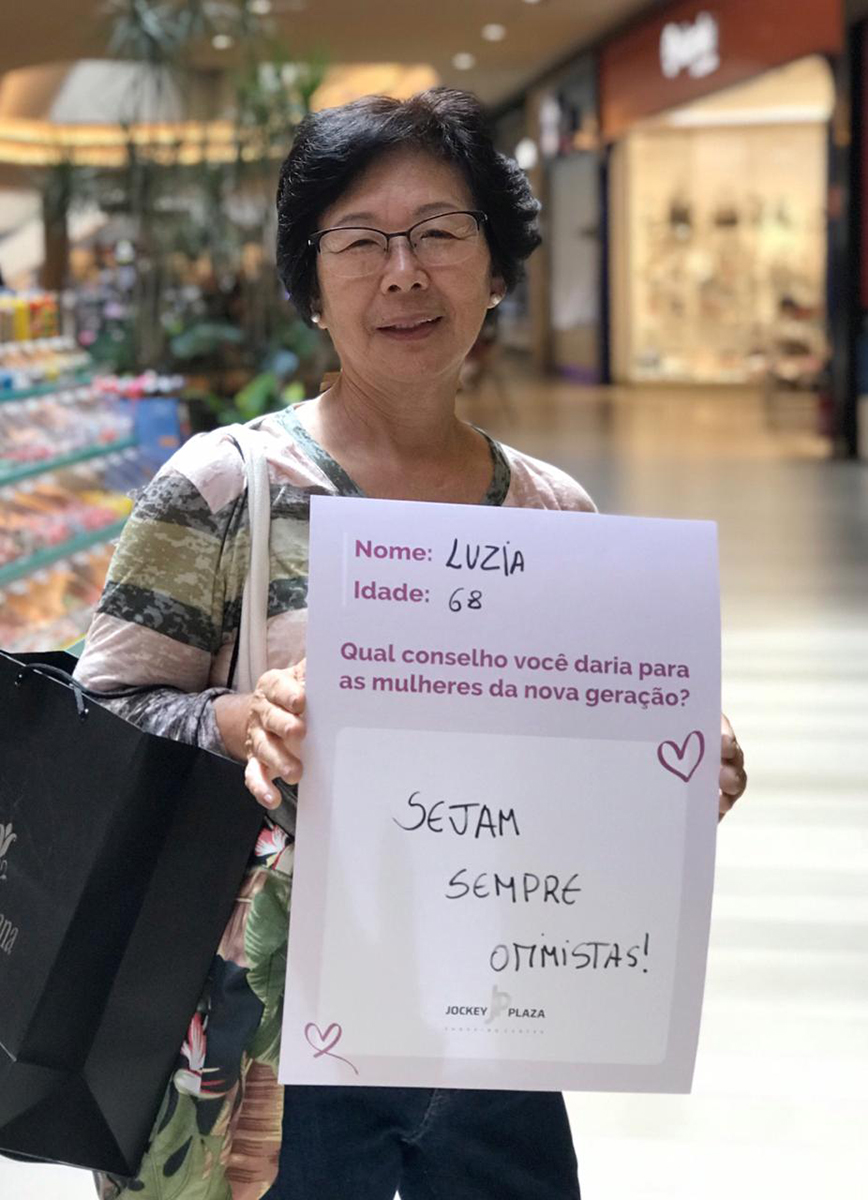 Nome: LUZIA
Idade: 68
Qual conselho você daria para
as mulheres da nova geração?
SEJAM
SEMPRE
OTIMISTAS!
JOCKEY PLAZA
SHOPPING CENTER